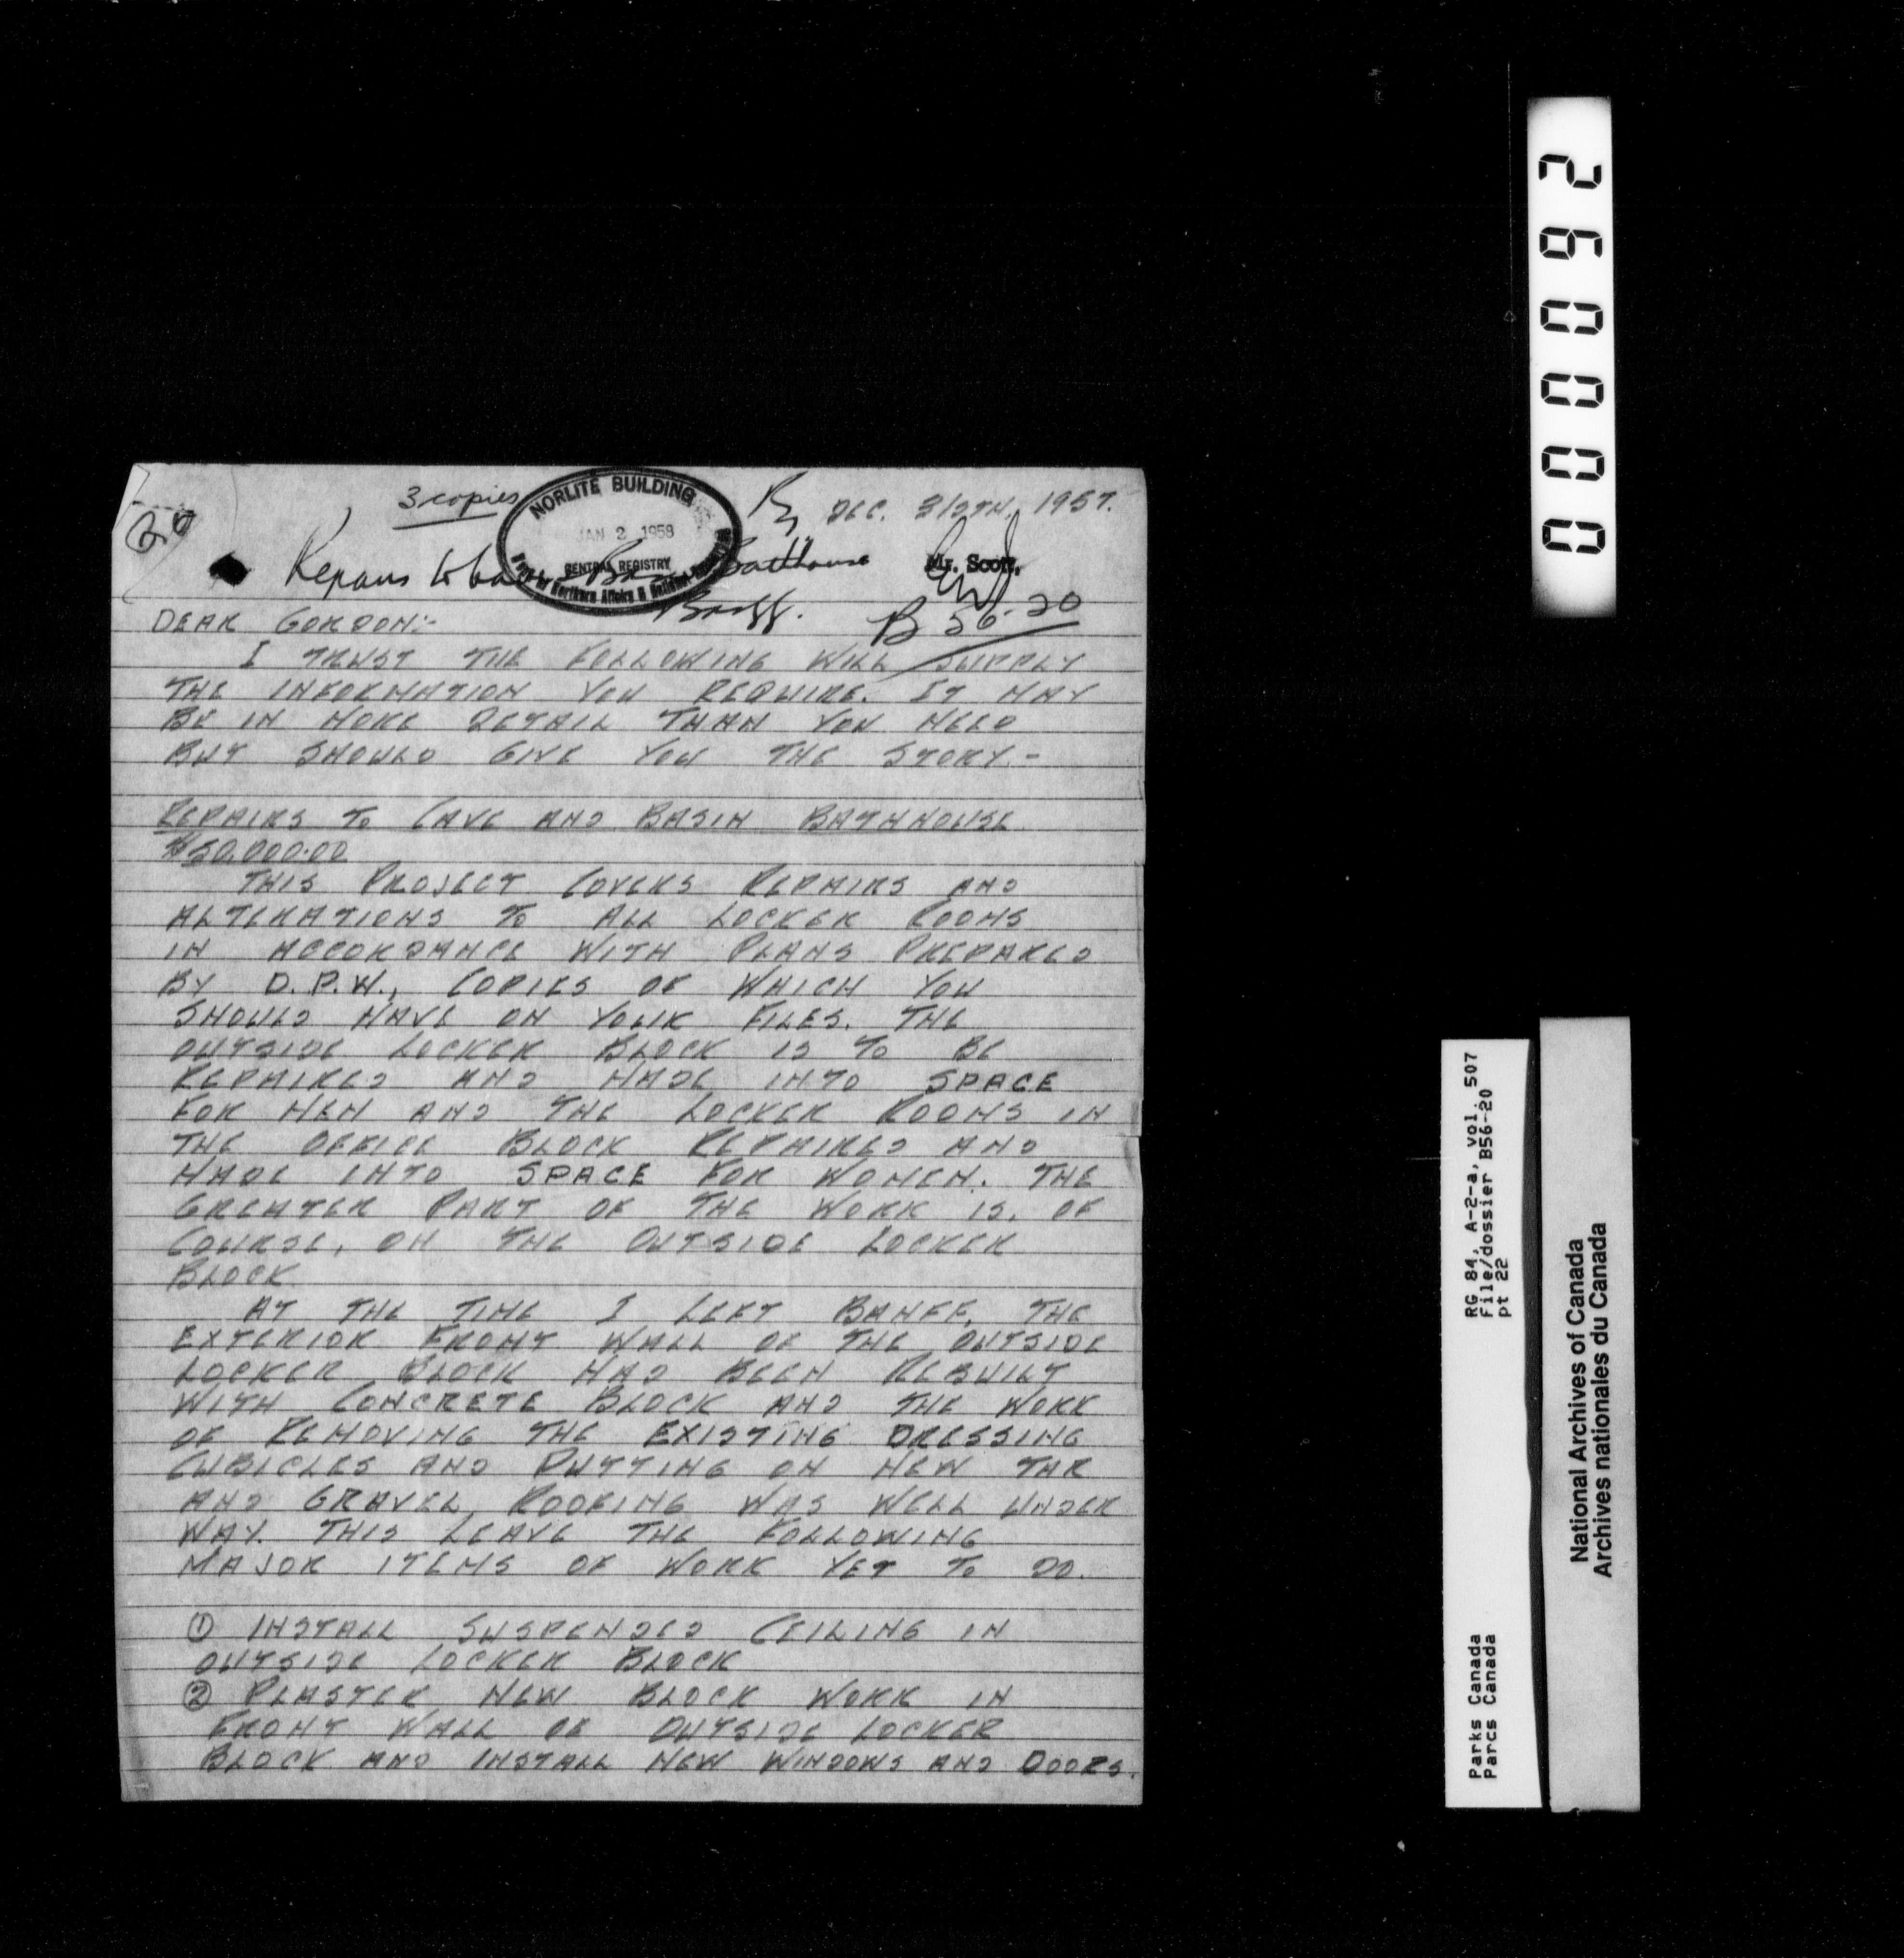 3 copies
NORLITE BUILDING
JAN 2 1958
CENTRAL REGISTRY
DEC. 1957.
Repairs to Bathhouse
Mr. Scott,
Banff.
B 56-20
DEAR GORDON:-
I TRUST THE FOLLOWING WILL SUPPLY
THE INFORMATION YOU REQUIRE. IT MAY
BE IN MORE DETAIL THAN YOU NEED
BUT SHOULD GIVE YOU THE STORY.-
REPAIRS TO CAVE AND BASIN BATHHOUSE
$50,000.00
THIS PROJECT COVERS REPAIRS AND
ALTERATIONS TO ALL LOCKER ROOMS
IN ACCORDANCE WITH PLANS PREPARED
BY D.P.W., COPIES OF WHICH YOU
SHOULD HAVE ON YOUR FILES. THE
OUTSIDE LOCKER BLOCK IS TO BE
REPAIRED AND MADE INTO SPACE
FOR MEN AND THE LOCKER ROOMS IN
THE OFFICE BLOCK REPAIRED AND
MADE INTO SPACE FOR WOMEN. THE
GREATER PART OF THE WORK IS, OF
COURSE, ON THE OUTSIDE LOCKER
BLOCK
AT THE TIME I LEFT BANFF, THE
EXTERIOR FRONT WALL OF THE OUTSIDE
LOCKER BLOCK HAD BEEN REBUILT
WITH CONCRETE BLOCK AND THE WORK
OF REMOVING THE EXISTING DRESSING
CUBICLES AND PUTTING ON NEW TAR
AND GRAVEL ROOFING WAS WELL UNDER
WAY. THIS LEAVE THE FOLLOWING
MAJOR ITEMS OF WORK YET TO DO.
① INSTALL SUSPENDED CEILING IN
OUTSIDE LOCKER BLOCK
② PLASTER NEW BLOCK WORK IN
FRONT WALL OF OUTSIDE LOCKER
BLOCK AND INSTALL NEW WINDOWS AND DOORS.
000092
RG 84, A-2-a, vol. 507
File/dossier B56-20
pt 22
Parks Canada
Parcs Canada
National Archives of Canada
Archives nationales du Canada